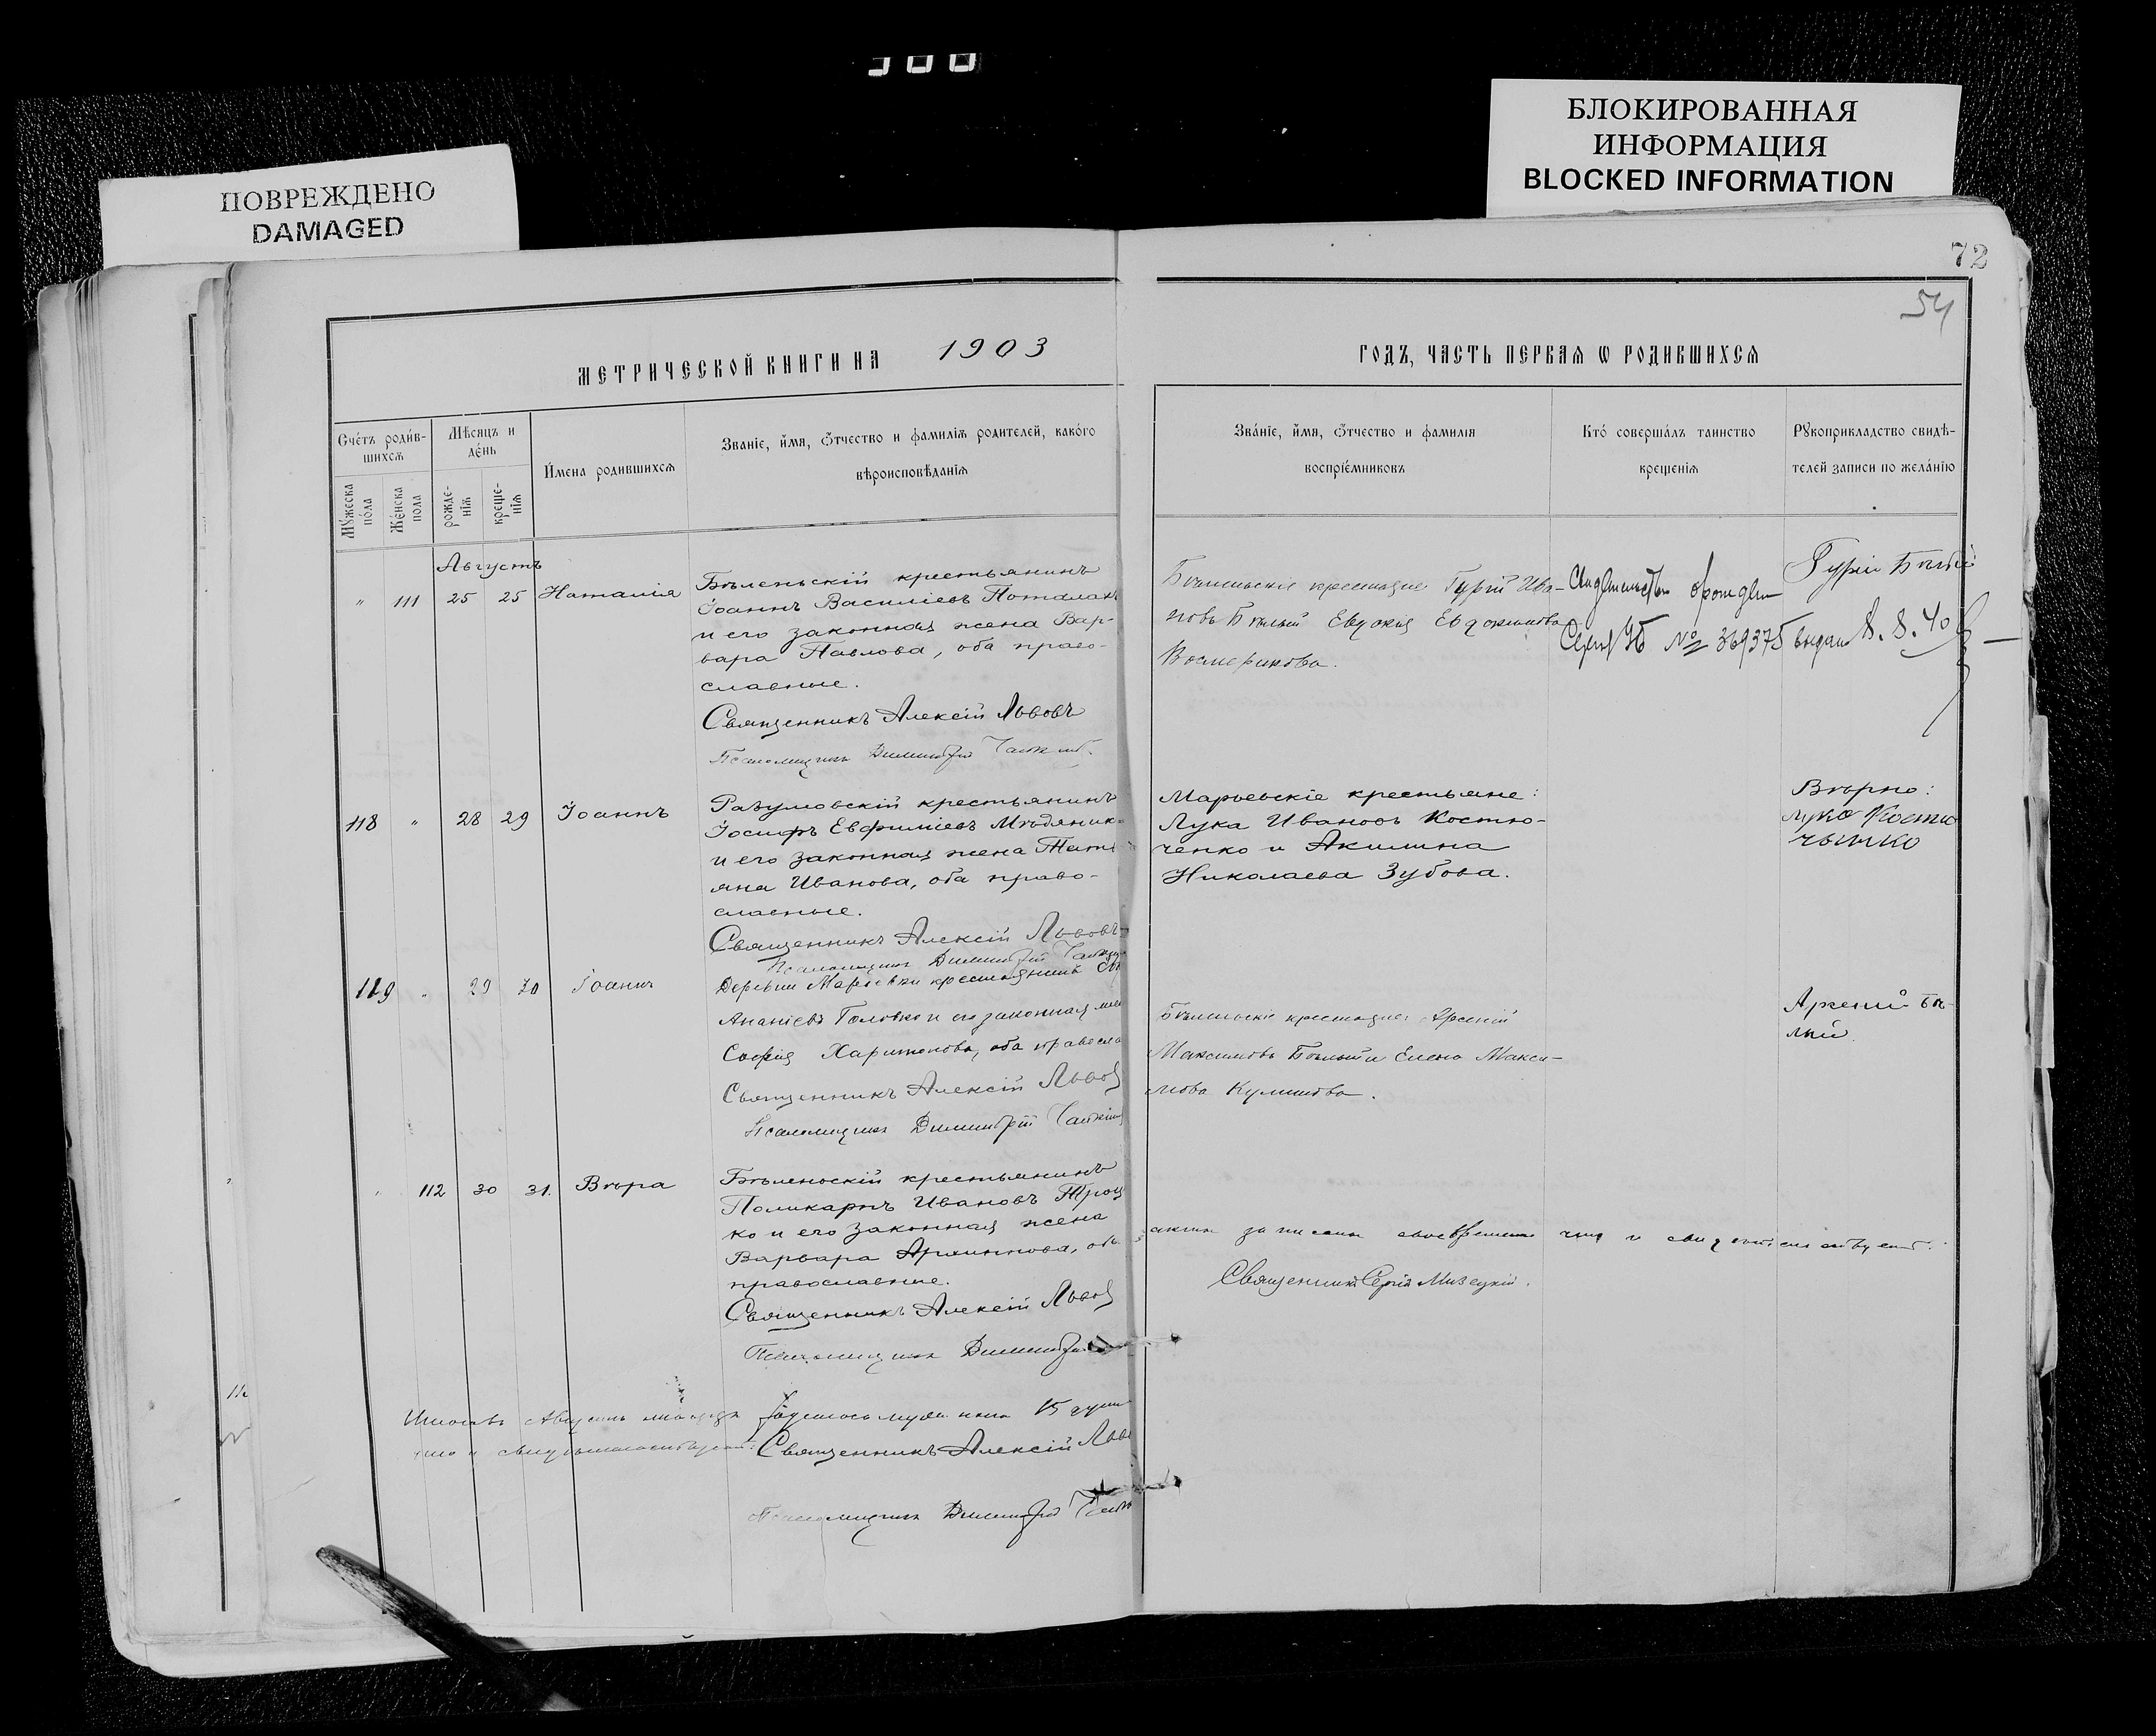 ПОВРЕЖДЕНО
DAMAGED
БЛОКИРОВАННАЯ
ИНФОРМАЦИЯ
BLOCKED INFORMATION
72
54
МЕТРИЧЕСКОЙ КНИГИ НА 1903
ГОДЪ, ЧАСТЬ ПЕРВАѦ Ѡ РОДИВШИХСѦ
Счетъ родив-
шихсѧ
Мѣсяцъ и
день
Мꙋжеска
пола
Женска
пола
рожде-
нїѧ
креще-
нїѧ
Имена родившихсѧ
Званїе, имя, ѿчество и фамилїѧ родителей, какого
вѣроисповѣданїѧ
Званїе, имя, ѿчество и фамилїя
воспрїемниковъ
Кто совершалъ таинство
крещенїѧ
Рꙋкоприкладство свидѣ-
телей записи по желанїю
Августъ
" 111 25 25 Наталія
Бѣленьскій крестьянинъ
Іоаннъ Василіевъ
и его законная жена Вар-
вара Павлова, оба право-
славные.
Священникъ Алексій Львовъ
Псаломщикъ Димитрій
Бѣленьскіе крестьяне Гурій Ива-
новъ Бѣлый Евдокія Евдокимова
Свидетельство о рождении
Серия № 369375 выдано 8.8.40
Гурій Бѣлый
118 " 28 29 Іоаннъ
Разумовскій крестьянинъ
Іосифъ Евфиміевъ Мѣдяник
и его законная жена Тать
яна Иванова, оба право-
славные.
Священникъ Алексій Львовъ
Псаломщикъ Димитрій
Марьевскіе крестьяне:
Лука Ивановъ Костю-
ченко и Акилина
Николаева Зубова.
Вѣрно:
119 " 29 30 Іоаннъ
Деревни Марьевки крестьянинъ
Ананіевъ Головко и его законная же
Софія Харитонова, оба правосла
Священникъ Алексій Львов
Псаломщикъ Димитрій
Бѣленьскіе крестьяне: Арсеній
Максимовъ Бѣлый и Елена Макси-
мова
Арсений Бѣ-
лый
" 112 30 31. Вѣра
Бѣленьскій крестьянинъ
Поликарпъ Ивановъ Троц
ко и его законная жена
Варвара, оба
православные.
Священникъ Алексій Львов
Псаломщикъ Димитрій
записаны своевременно чѣмъ и свидѣтельствуетъ.
Священникъ Сергій
Августъ родилось мужск пола 15 душ
что и свидѣтельствуетъ: Священникъ Алексій Льв
Псаломщикъ Димитрій